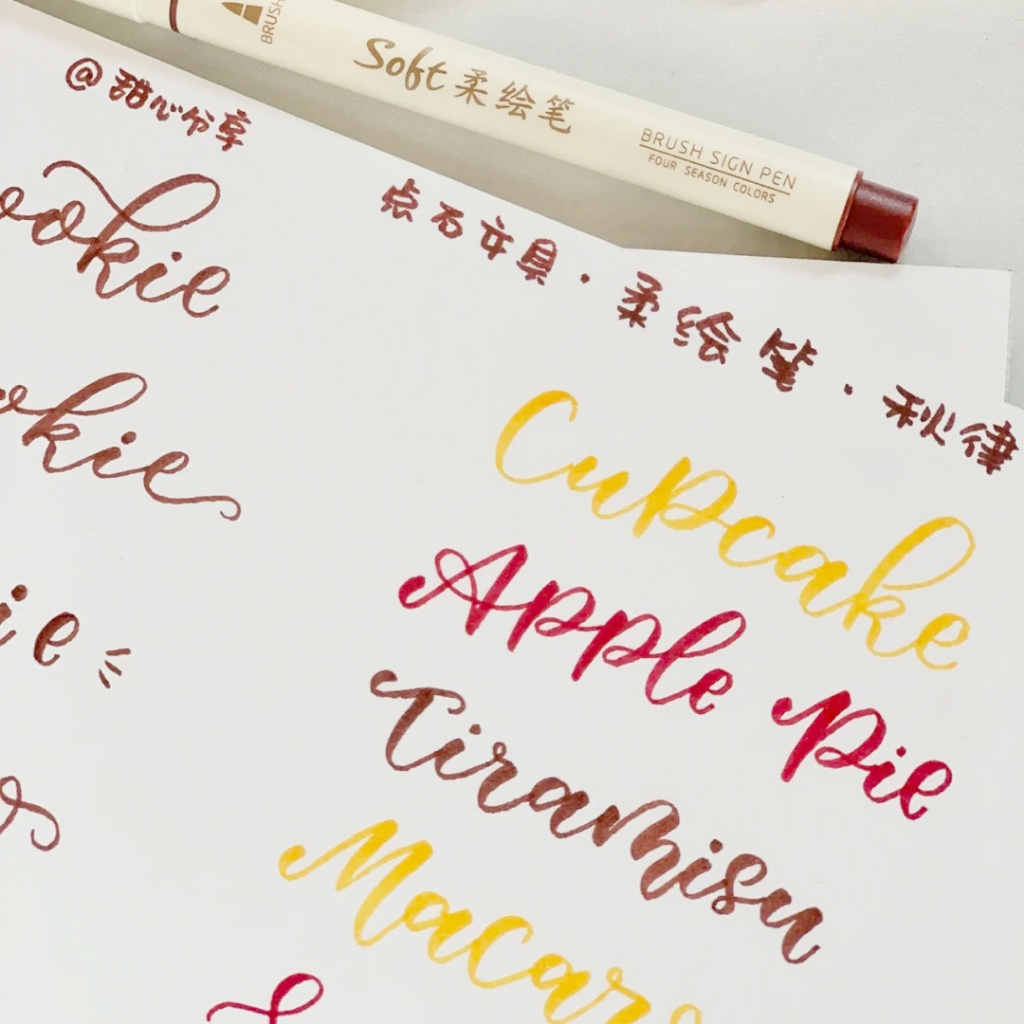 BRUSH
Soft 柔绘笔
BRUSH SIGN PEN
FOUR SEASON COLORS
@甜心分享
点石文具·柔绘笔·秋律
ookie
okie
ie
Cupcake
Apple Pie
Tiramisu
Macar